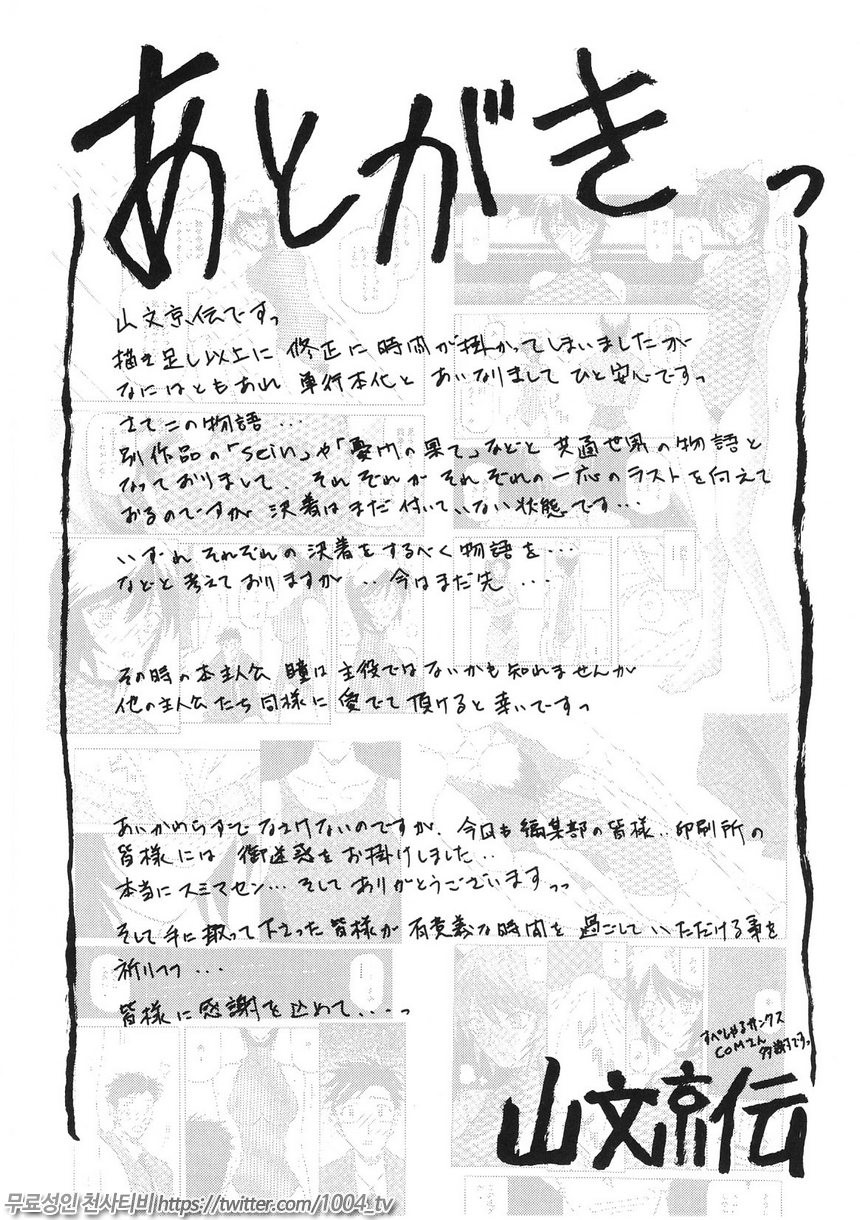 あとがきっ
山文京伝ですっ
描き足し以上に 修正に時間が掛かってしまいましたが
なにはともあれ 単行本化と あいなりまして ひと安心ですっ
さてこの物語・・・
別作品の「sein」や「憂悶の果て」などと 共通世界の物語と
なっておりまして、それぞれが それぞれの一応のラストを向えて
おるのですが 決着はまだ付いていない状態です・・・
いずれ それぞれの 決着をするべく物語を・・・
などと 考えておりますが ・・今はまだ先 ・・・
その時の本主人公 瞳は主役ではないかも知れませんが
他の主人公たち同様に 愛でて頂けると 幸いですっ
あいかわらずで なさけないのですが、今回も 編集部の皆様・・印刷所の
皆様には 御迷惑を お掛けしました・・
本当にスミマセン・・・ そして ありがとうございますっっ
そして手に取って下さった 皆様が 有意義な時間を 過ごして いただける事を
祈りつつ ・・・
皆様に感謝を込めて・・・・っ
すぺしゃるサンクス
COMさん
多謝ですっ
山文京伝
무료성인 천사티비 https://twitter.com/1004_tv